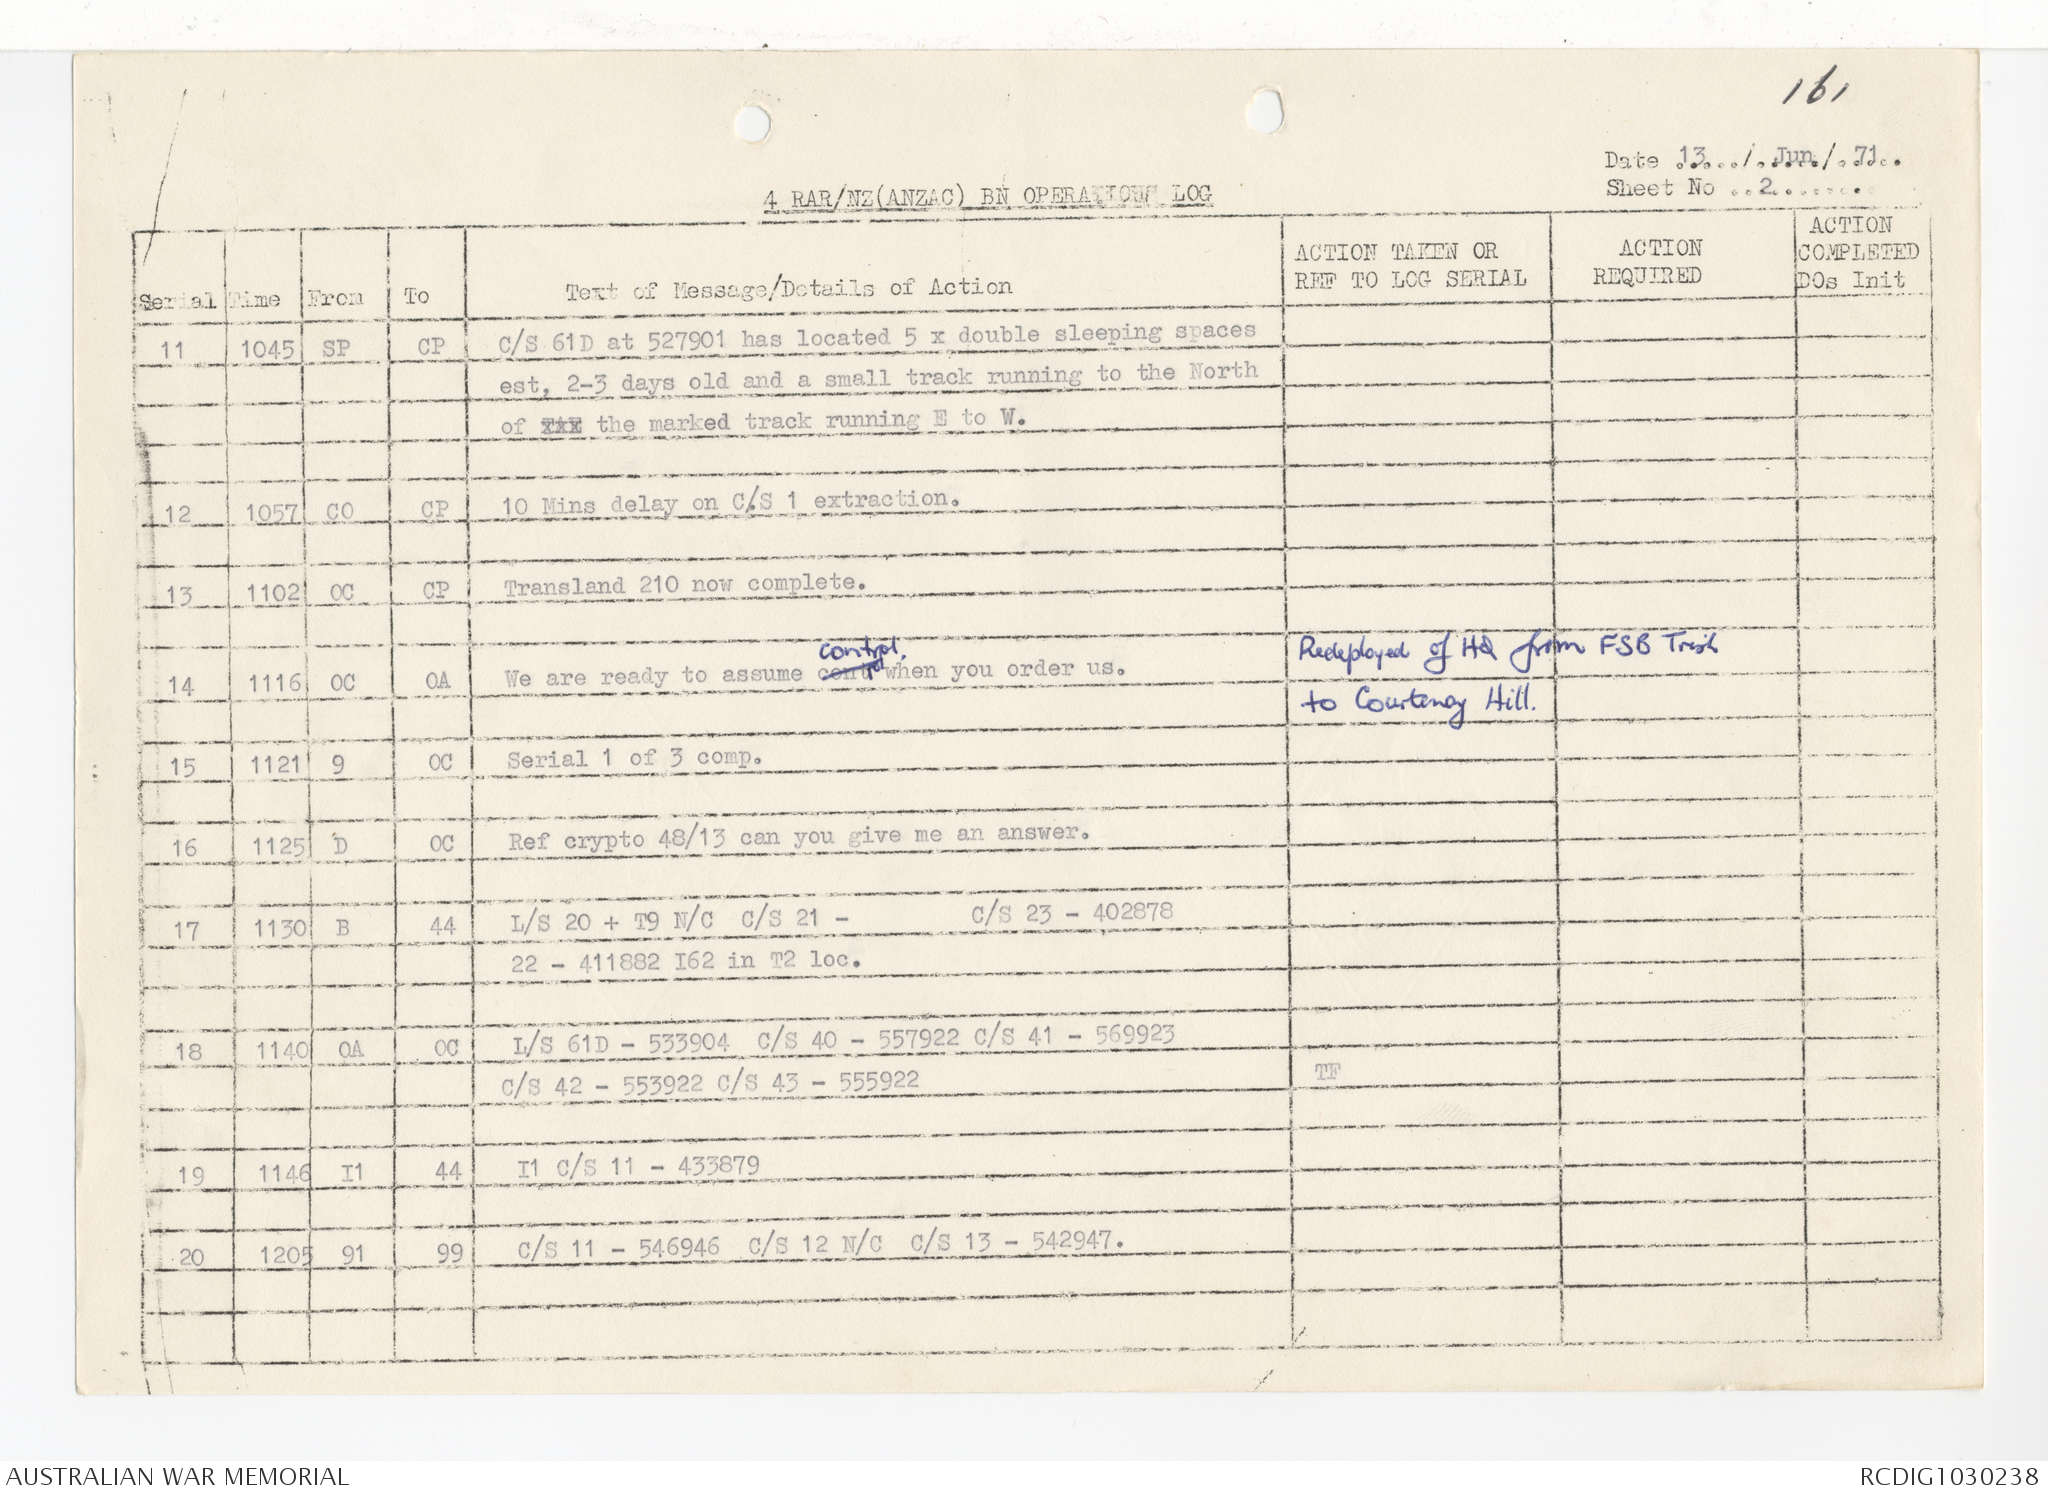 161
Date 13 / Jun / 71
Sheet No 2
4 RAR/NZ(ANZAC) BN OPERATIONS LOG
Serial Time From To Text of Message/Details of Action ACTION TAKEN OR REF TO LOG SERIAL ACTION REQUIRED ACTION COMPLETED DOs Init
11 1045 SP CP C/S 61D at 527901 has located 5 x double sleeping spaces
est, 2-3 days old and a small track running to the North
of xxx the marked track running E to W.
12 1057 CO CP 10 Mins delay on C/S 1 extraction.
13 1102 OC CP Transland 210 now complete.
control. Redeployed of HQ from FSB Trish
14 1116 OC OA We are ready to assume when you order us.
to Courtenay Hill.
15 1121 9 OC Serial 1 of 3 comp.
16 1125 D OC Ref crypto 48/13 can you give me an answer.
17 1130 B 44 L/S 20 + T9 N/C C/S 21 - C/S 23 - 402878
22 - 411882 I62 in T2 loc.
18 1140 OA OC L/S 61D - 533904 C/S 40 - 557922 C/S 41 - 569923
C/S 42 - 553922 C/S 43 - 555922 TF
19 1146 I1 44 I1 C/S 11 - 433879
20 1205 91 99 C/S 11 - 546946 C/S 12 N/C C/S 13 - 542947.
AUSTRALIAN WAR MEMORIAL RCDIG1030238